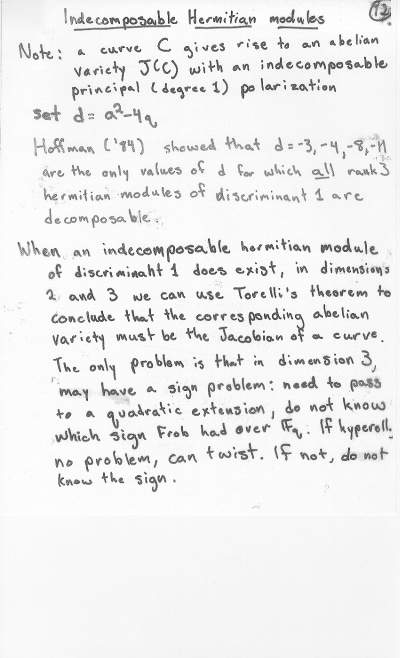 Indecomposable Hermitian modules
12
Note: a curve C gives rise to an abelian
variety J(C) with an indecomposable
principal (degree 1) polarization
set d = a²-4q
Hoffman ('84) showed that d = -3, -4, -8, -11
are the only values of d for which all rank 3
hermitian modules of discriminant 1 are
decomposable.
When an indecomposable hermitian module
of discriminant 1 does exist, in dimensions
2 and 3 we can use Torelli's theorem to
conclude that the corresponding abelian
variety must be the Jacobian of a curve.
The only problem is that in dimension 3,
may have a sign problem: need to pass
to a quadratic extension, do not know
which sign Frob had over 𝔽q. If hyperell,
no problem, can twist. If not, do not
know the sign.